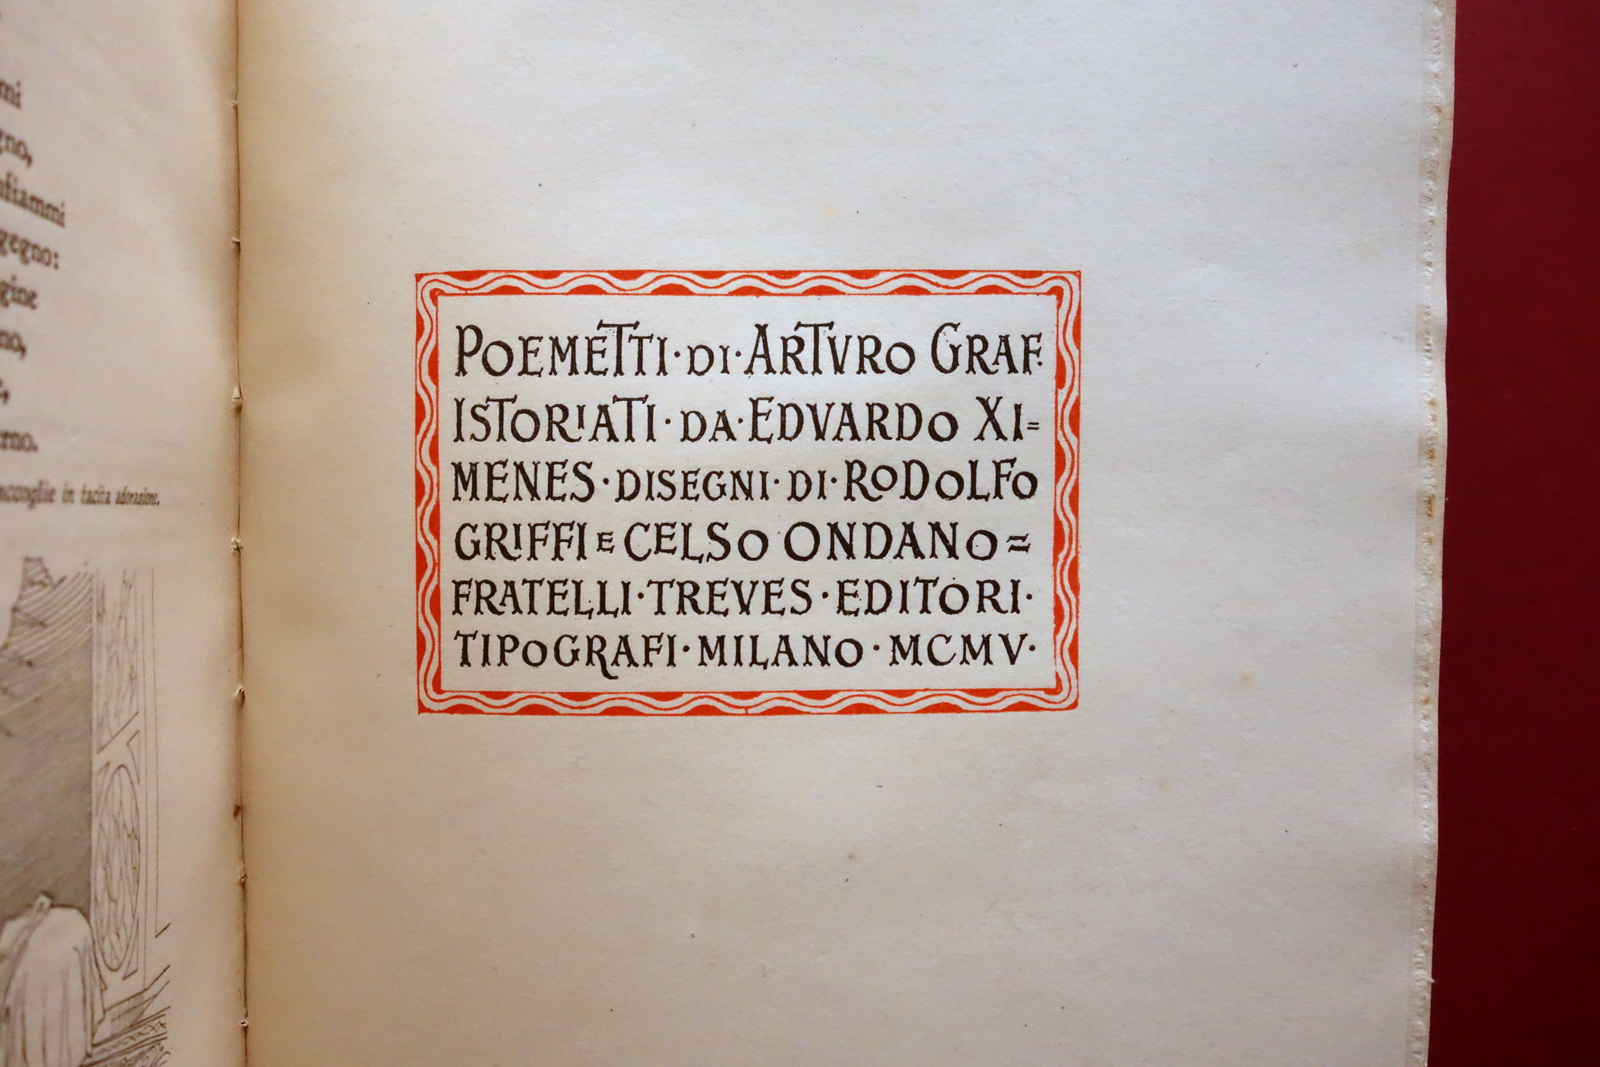 mi
gno,
nfiammi
gegno:
gine
no,
rno.
accoglie in tacita adorazione.
POEMETTI·DI·ARTVRO GRAF
ISTORIATI·DA·EDVARDO XI=
MENES·DISEGNI·DI·RODOLFO
GRIFFI E CELSO ONDANO=
FRATELLI·TREVES·EDITORI·
TIPOGRAFI·MILANO·MCMV·